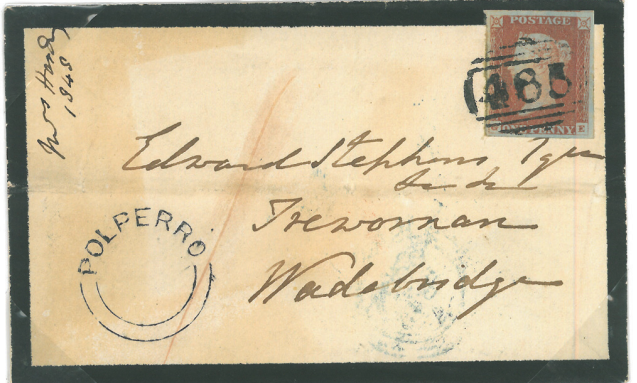 Mrs Hardy
1848
POSTAGE
485
ONE PENNY E
Edward Stephens Esqre
&c &c
Trewornan
Wadebridge
POLPERRO